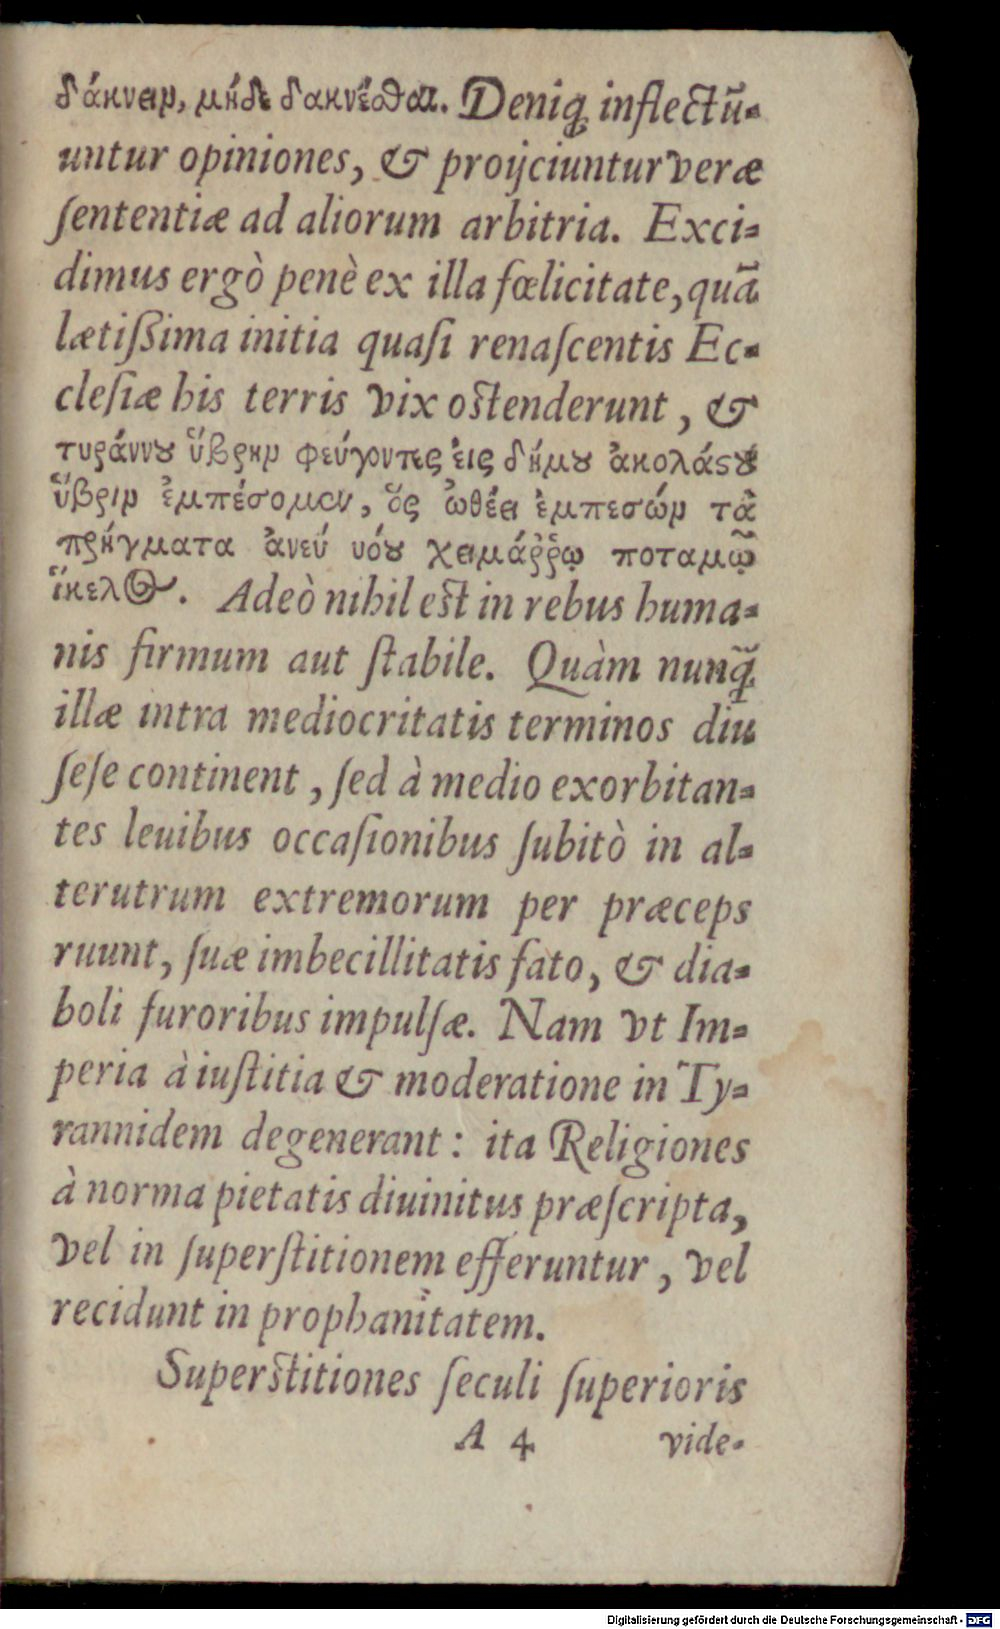 δάκνειν, μήδε δακνέεσθαι. Deniq; inflectū-
untur opiniones, & proijciuntur veræ
ſententiæ ad aliorum arbitria. Exci-
dimus ergò penè ex illa fœlicitate, quā
lætiſſima initia quaſi renaſcentis Ec-
cleſiæ his terris vix oſtenderunt, &
τυράννου ὕβρην φεύγοντες εἰς δήμου ἀκολάστου
ὕβριν ἐμπέσομεν, ὃς ὠθέει ἐμπεσών τὰ
πρήγματα ἀνεύ νόου χειμάῤῥῳ ποταμῷ
ἵκελος. Adeò nihil eſt in rebus huma-
nis firmum aut ſtabile. Quàm nunq̃;
illæ intra mediocritatis terminos diu
ſeſe continent, ſed à medio exorbitan-
tes leuibus occaſionibus ſubitò in al-
terutrum extremorum per præceps
ruunt, ſuæ imbecillitatis fato, & dia-
boli furoribus impulſæ. Nam vt Im-
peria à iuſtitia & moderatione in Ty-
rannidem degenerant: ita Religiones
à norma pietatis diuinitus præſcripta,
vel in ſuperſtitionem efferuntur, vel
recidunt in prophanitatem.
Superſtitiones ſeculi ſuperioris
A 4 vide-
Digitalisierung gefördert durch die Deutsche Forschungsgemeinschaft - DFG